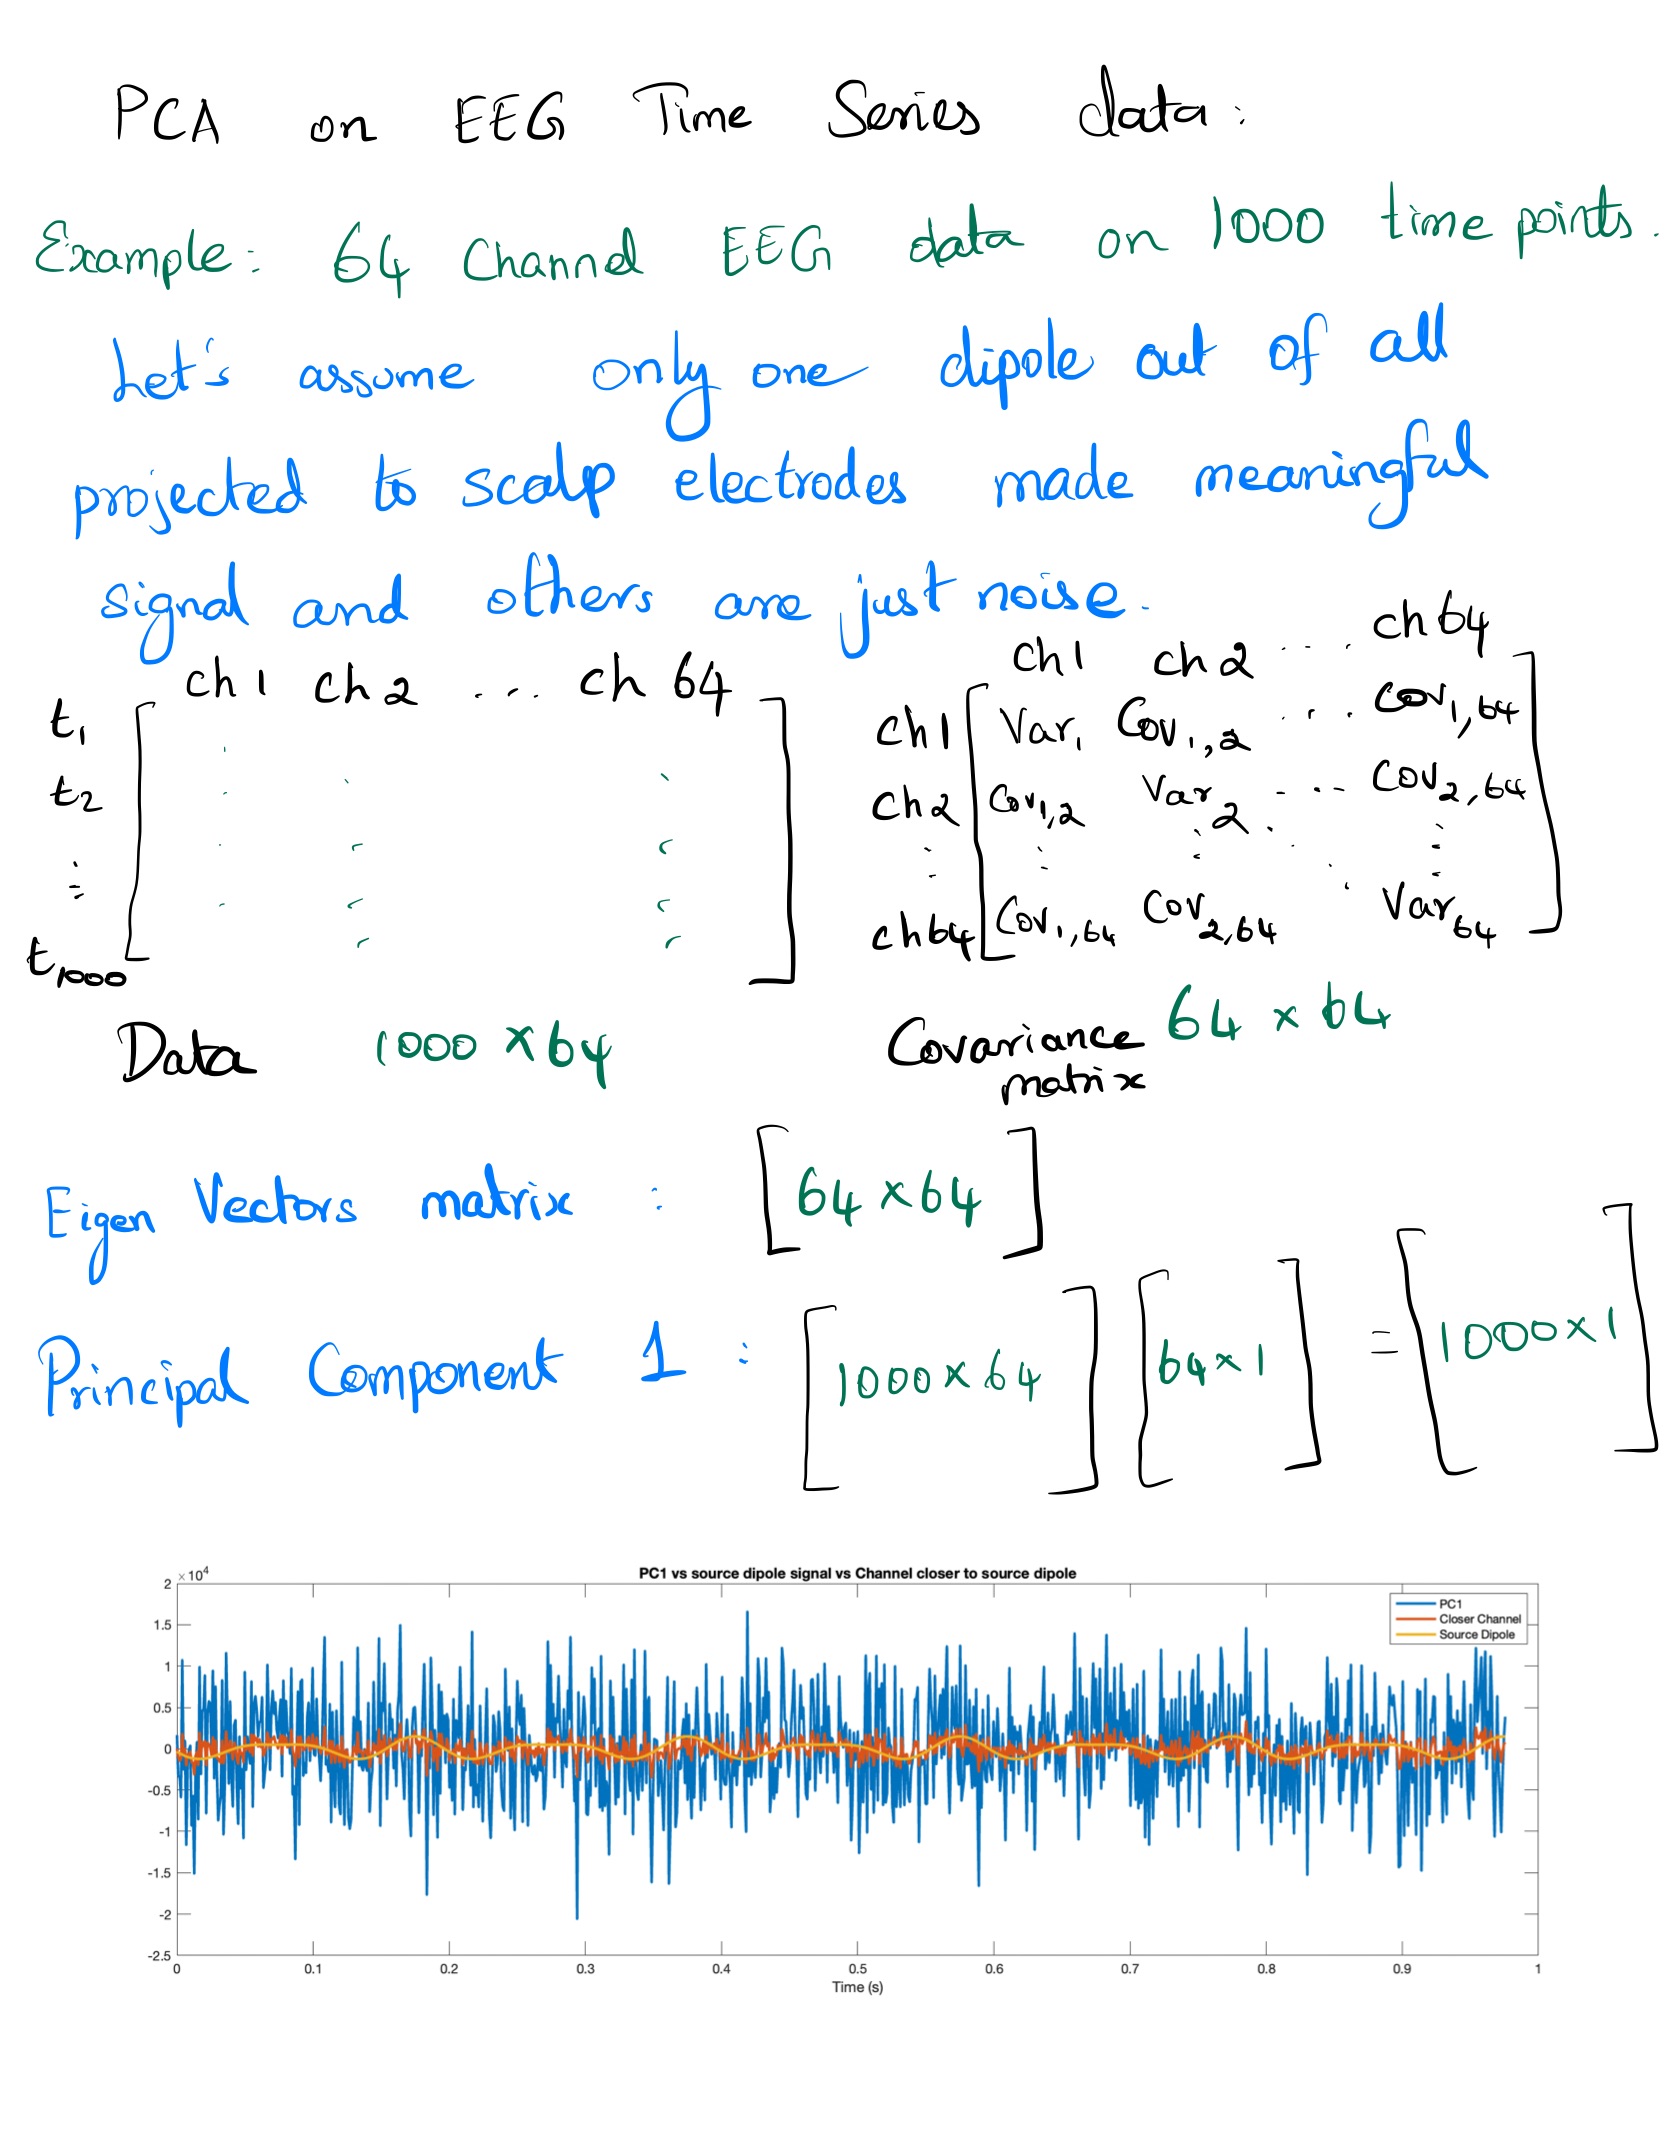 PCA on EEG Time Series data:
Example: 64 Channel EEG data on 1000 time points.
Let's assume only one dipole out of all
projected to scalp electrodes made meaningful
signal and others are just noise.
ch 1 ch 2 ... ch 64
t1
t2
⋮
t1000
Data 1000 × 64
ch1 ch 2 ... ch 64
ch1 Var1 Cov1,2 ... Cov1,64
ch2 Cov1,2 Var2 ... Cov2,64
⋮ ⋮ ⋮ ⋱ ⋮
ch64 Cov1,64 Cov2,64 Var64
Covariance 64 × 64
matrix
Eigen Vectors matrix : [64 × 64]
Principal Component 1 : [1000 × 64] [64 × 1] = [1000 × 1]
PC1 vs source dipole signal vs Channel closer to source dipole
×10^4
PC1
Closer Channel
Source Dipole
2
1.5
1
0.5
0
-0.5
-1
-1.5
-2
-2.5
0 0.1 0.2 0.3 0.4 0.5 0.6 0.7 0.8 0.9 1
Time (s)